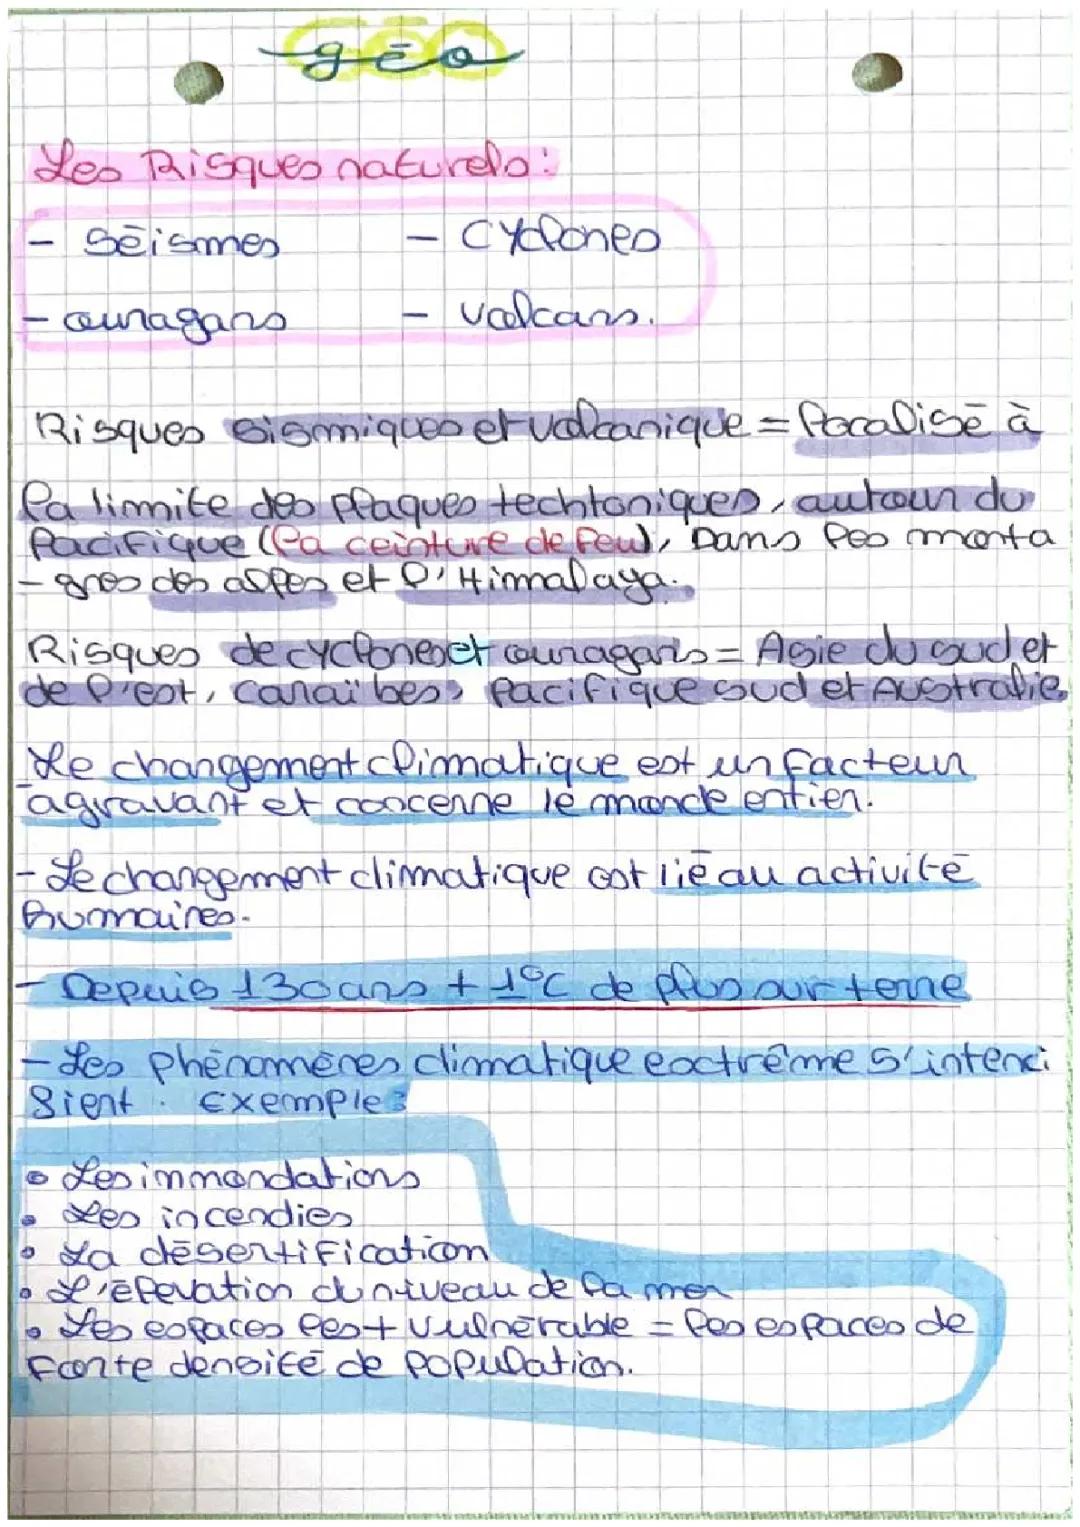 géo
Les Risques naturels:
- séismes - cyclones
- ouragans - volcans.
Risques sismiques et volcanique = localisé à
la limite des plaques techtoniques, autour du
Pacifique (la ceinture de feu), Dans les monta
-gnes des alpes et l'Himalaya.
Risques de cyclones et ouragans = Asie du sud et
de l'est, caraïbes, pacifique sud et Australie
Le changement climatique est un facteur
agravant et concerne le monde entier.
- Le changement climatique est lié au activité
humaines.
- Depuis 130 ans + 1°C de plus sur terre
- Les phénomènes climatique extrême s'intenci
sient. Exemple:
• Les innondations
• Les incendies
• La désertification
• L'élevation du niveau de la mer
• Les espaces les + vulnérable = les espaces de
forte densité de population.